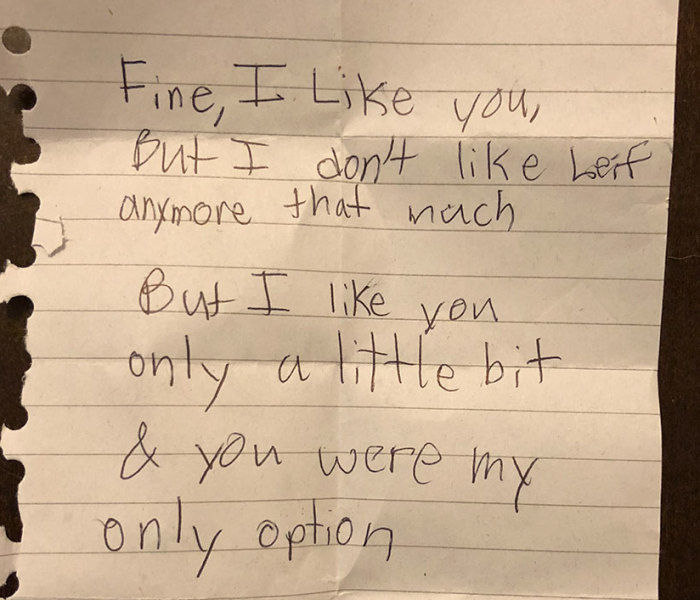 Fine, I Like you,
But I don't like Leif
anymore that much
But I like you
only a little bit
& you were my
only option